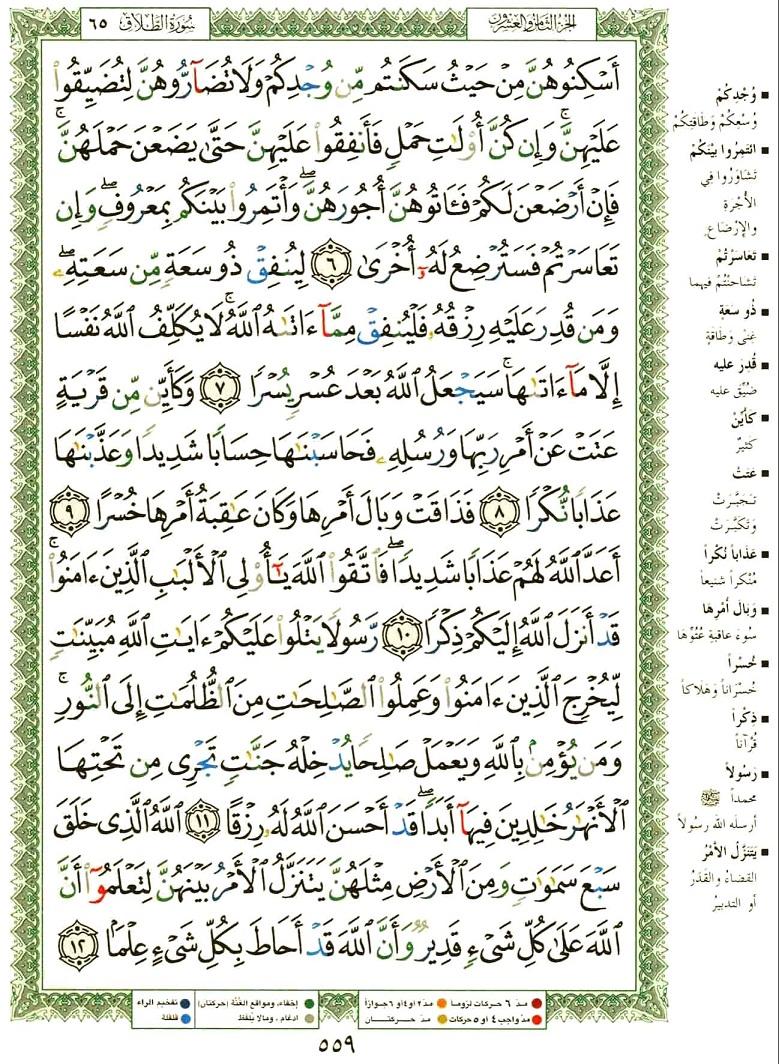 الجزء الثامن والعشرون
سُورَةُ الطَّلَاقِ ٦٥
أَسْكِنُوهُنَّ مِنْ حَيْثُ سَكَنتُم مِّن وُجْدِكُمْ وَلَا تُضَآرُّوهُنَّ لِتُضَيِّقُوا۟
عَلَيْهِنَّ ۚ وَإِن كُنَّ أُو۟لَـٰتِ حَمْلٍ فَأَنفِقُوا۟ عَلَيْهِنَّ حَتَّىٰ يَضَعْنَ حَمْلَهُنَّ ۚ
فَإِنْ أَرْضَعْنَ لَكُمْ فَـَٔاتُوهُنَّ أُجُورَهُنَّ ۖ وَأْتَمِرُوا۟ بَيْنَكُم بِمَعْرُوفٍ ۖ وَإِن
تَعَاسَرْتُمْ فَسَتُرْضِعُ لَهُۥٓ أُخْرَىٰ ٦ لِيُنفِقْ ذُو سَعَةٍ مِّن سَعَتِهِۦ ۖ
وَمَن قُدِرَ عَلَيْهِ رِزْقُهُۥ فَلْيُنفِقْ مِمَّآ ءَاتَىٰهُ ٱللَّهُ ۚ لَا يُكَلِّفُ ٱللَّهُ نَفْسًا
إِلَّا مَآ ءَاتَىٰهَا ۚ سَيَجْعَلُ ٱللَّهُ بَعْدَ عُسْرٍ يُسْرًا ٧ وَكَأَيِّن مِّن قَرْيَةٍ
عَتَتْ عَنْ أَمْرِ رَبِّهَا وَرُسُلِهِۦ فَحَاسَبْنَـٰهَا حِسَابًا شَدِيدًا وَعَذَّبْنَـٰهَا
عَذَابًا نُّكْرًا ٨ فَذَاقَتْ وَبَالَ أَمْرِهَا وَكَانَ عَـٰقِبَةُ أَمْرِهَا خُسْرًا ٩
أَعَدَّ ٱللَّهُ لَهُمْ عَذَابًا شَدِيدًا ۖ فَٱتَّقُوا۟ ٱللَّهَ يَـٰٓأُو۟لِى ٱلْأَلْبَـٰبِ ٱلَّذِينَ ءَامَنُوا۟ ۚ
قَدْ أَنزَلَ ٱللَّهُ إِلَيْكُمْ ذِكْرًا ١٠ رَّسُولًا يَتْلُوا۟ عَلَيْكُمْ ءَايَـٰتِ ٱللَّهِ مُبَيِّنَـٰتٍ
لِّيُخْرِجَ ٱلَّذِينَ ءَامَنُوا۟ وَعَمِلُوا۟ ٱلصَّـٰلِحَـٰتِ مِنَ ٱلظُّلُمَـٰتِ إِلَى ٱلنُّورِ ۚ
وَمَن يُؤْمِنۢ بِٱللَّهِ وَيَعْمَلْ صَـٰلِحًا يُدْخِلْهُ جَنَّـٰتٍ تَجْرِى مِن تَحْتِهَا
ٱلْأَنْهَـٰرُ خَـٰلِدِينَ فِيهَآ أَبَدًا ۖ قَدْ أَحْسَنَ ٱللَّهُ لَهُۥ رِزْقًا ١١ ٱللَّهُ ٱلَّذِى خَلَقَ
سَبْعَ سَمَـٰوَٰتٍ وَمِنَ ٱلْأَرْضِ مِثْلَهُنَّ يَتَنَزَّلُ ٱلْأَمْرُ بَيْنَهُنَّ لِتَعْلَمُوٓا۟ أَنَّ
ٱللَّهَ عَلَىٰ كُلِّ شَىْءٍ قَدِيرٌ وَأَنَّ ٱللَّهَ قَدْ أَحَاطَ بِكُلِّ شَىْءٍ عِلْمًۢا ١٢
■ وُجْدِكُمْ
وُسْعِكُمْ وَطَاقَتِكُمْ
■ ائتَمِرُوا بَيْنَكُمْ
تَشَاوَرُوا فِي
الأُجْرَةِ
والإِرْضَاعِ
■ تَعَاسَرْتُمْ
تَشَاحَنْتُمْ فِيهِما
■ ذُو سَعَةٍ
غِنًى وَطَاقَةٍ
■ قُدِرَ عليه
ضُيِّقَ عليه
■ كَأَيِّنْ
كَثِيرٌ
■ عَتَتْ
تَجَبَّرَتْ
وَتَكَبَّرَتْ
■ عَذَاباً نُكْراً
مُنْكَراً شَنِيعاً
■ وَبَالَ أَمْرِهَا
سُوءَ عاقبةِ عُتُوِّهَا
■ خُسْراً
خُسْرَاناً وَهَلَاكاً
■ ذِكْراً
قُرْآناً
■ رَسُولاً
محمداً ﷺ
أرسله الله رسُولاً
■ يَتَنَزَّلُ الأمْرُ
القضاءُ والقَدَرُ
أو التدبيرُ
مدّ ٦ حركات لزوماً
مدّ ٢ أو ٤ أو ٦ جوازاً
إخفاء، ومواقع الغُنَّة (حركتان)
تفخيم الراء
مدّ واجب ٤ أو ٥ حركات
مدّ حـركتـــان
إدغام، وما لا يُلفَظ
قلقلة
٥٥٩